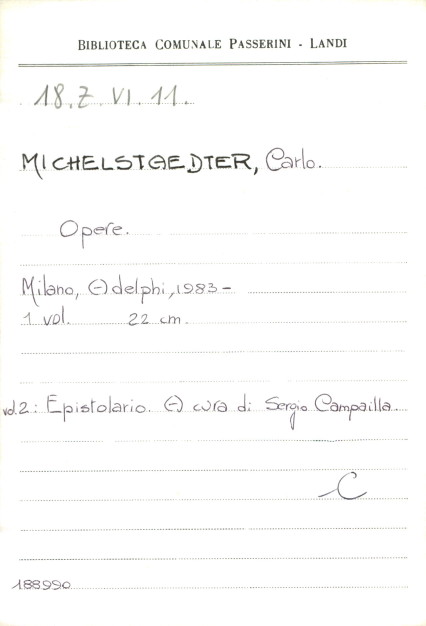 BIBLIOTECA COMUNALE PASSERINI - LANDI
18.Z.VI.11.
MICHELSTAEDTER, Carlo.
Opere.
Milano, Adelphi, 1983-
1 vol. 22 cm.
vol.2: Epistolario. A cura di Sergio Campailla.
C
188990